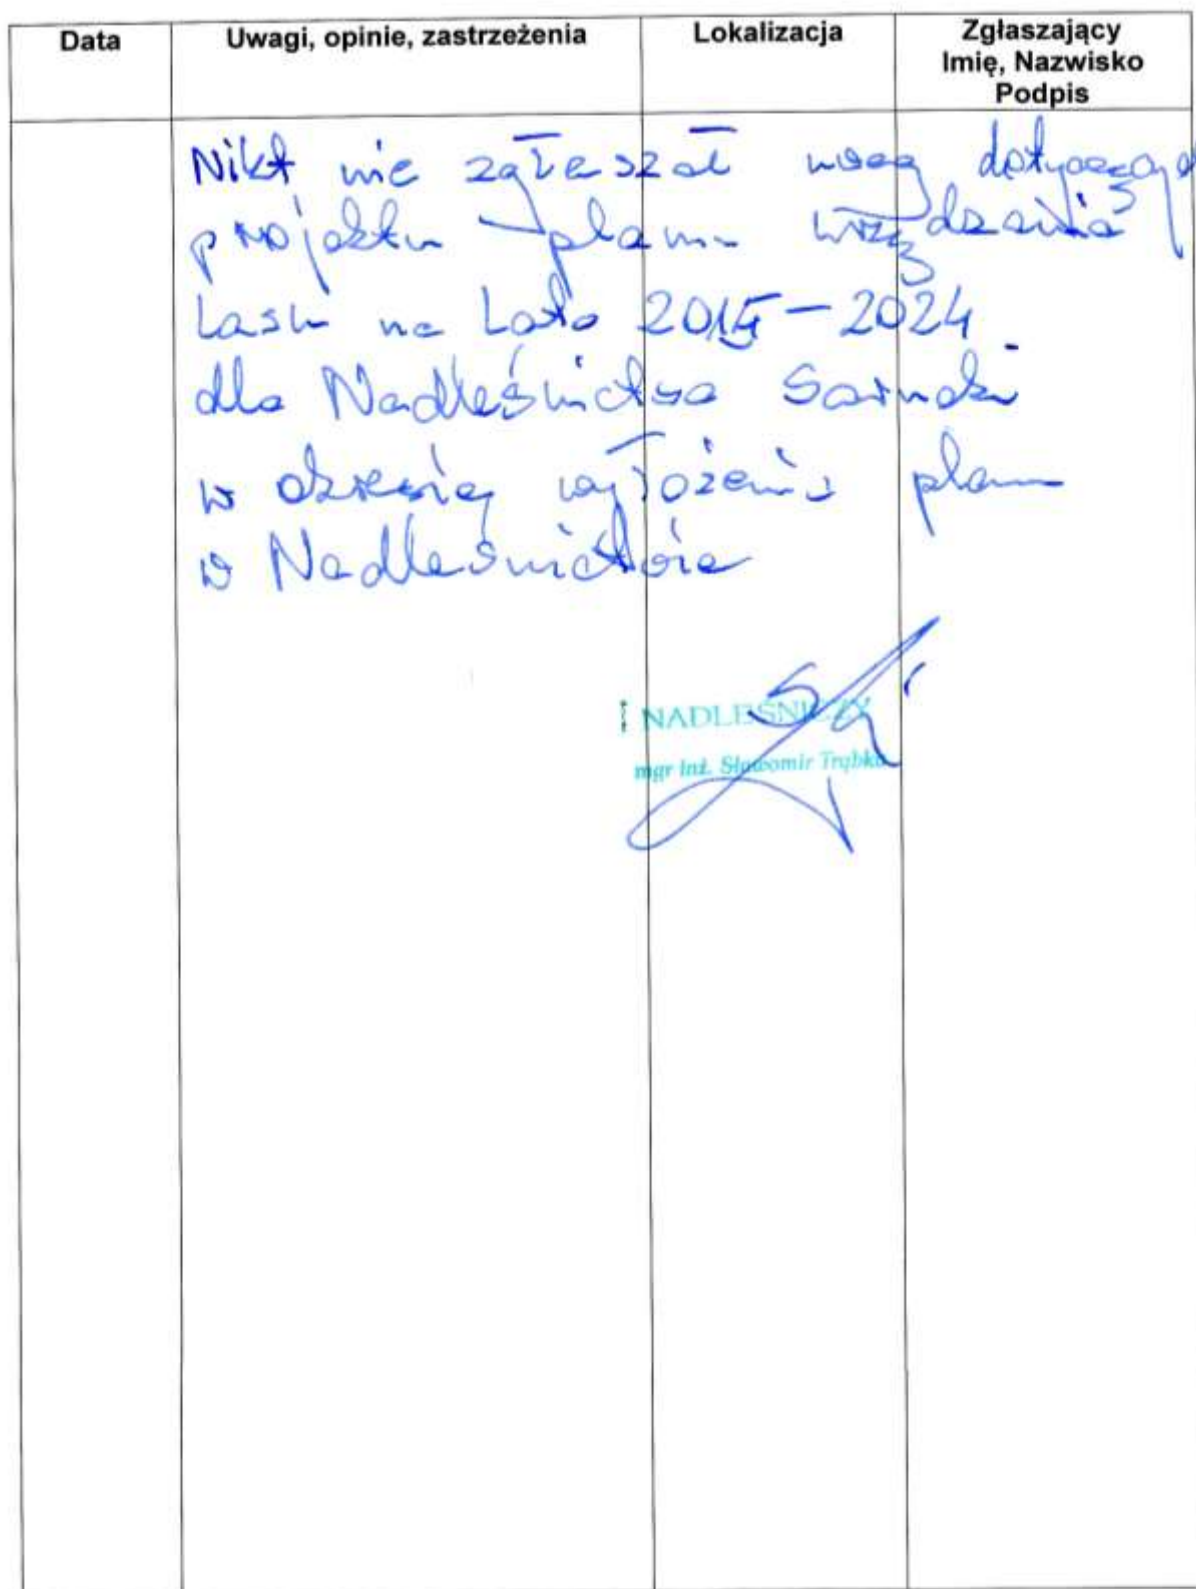 Data Uwagi, opinie, zastrzeżenia Lokalizacja Zgłaszający
Imię, Nazwisko
Podpis
Nikt nie zgłaszał uwag dotyczących
projektu planu urządzenia
Lasu na Lata 2015-2024
dla Nadleśnictwa Sarnaki
w okresie wyłożenia planu
w Nadleśnictwie
NADLEŚNICZY
mgr inż. Sławomir Trąbka